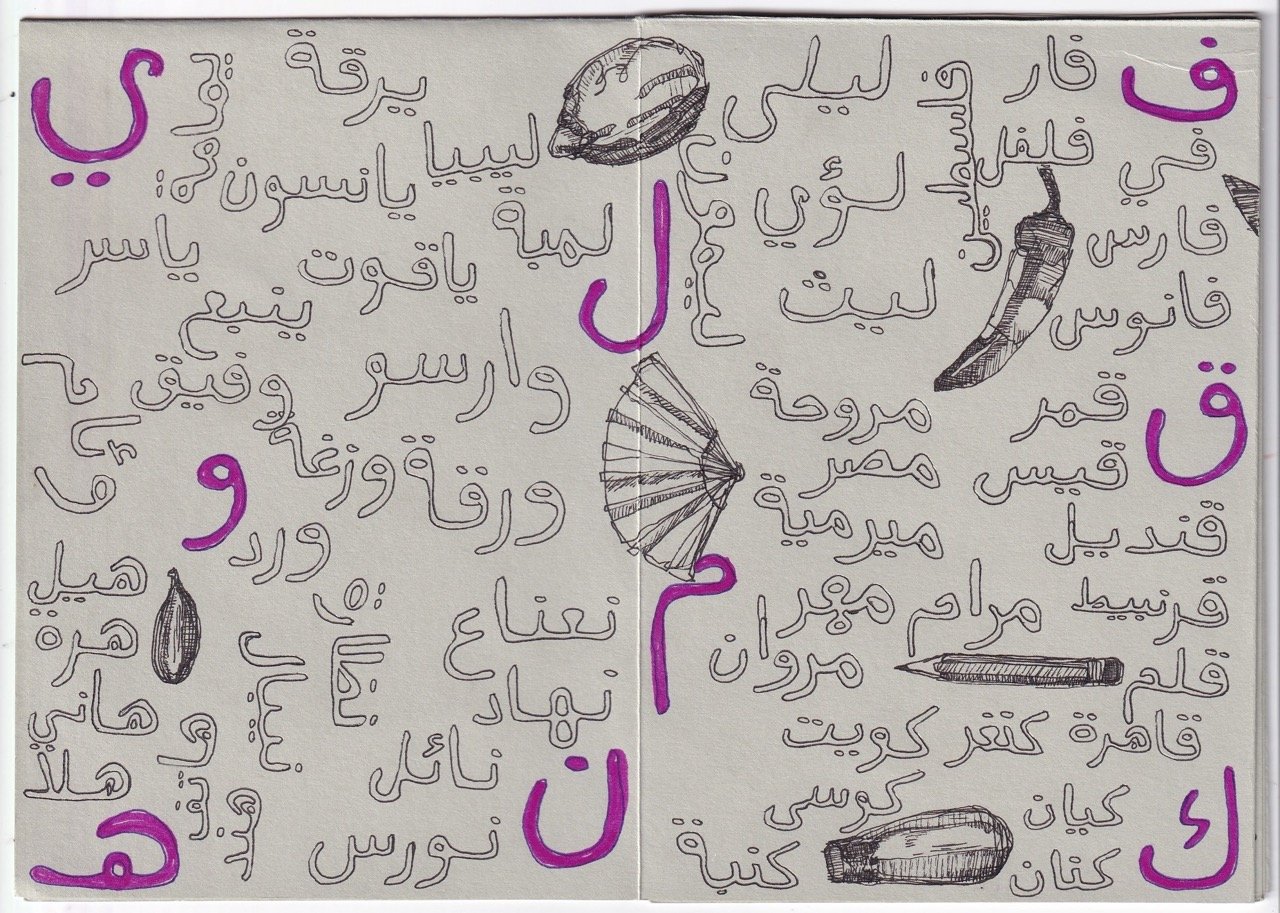 ف
فار
فلسطين
فلفل
في
فارس
فانوس
ليلى
لؤي
ليث
ل
ليبيا
لمبة
ق
قمر
قيس
قنديل
قرنبيط
قلم
قاهرة
مروحة
مصر
ميرمية
مهر
مرام
مروان
م
ك
كنغر
كويت
كوسى
كيان
كتان
كنبة
ي
يرقة
يمامة
يانسون
ياسر
ياقوت
ينبع
و
وارسو
وفيق
وزغة
ورقة
ورد
ن
نعناع
نهاد
نائل
نورس
هـ
هيل
هرة
هاني
هلا
هاتف
هند